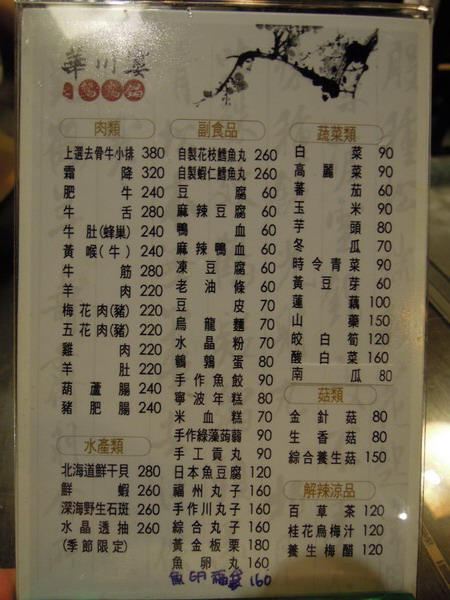 華川宴
鴛鴦鍋
肉類
上選去骨牛小排 380
霜降 320
肥牛 240
牛舌 280
牛肚(蜂巢) 240
黃喉(牛) 240
牛筋 280
羊肉 220
梅花肉(豬) 220
五花肉(豬) 220
雞肉 220
羊肚 220
葫蘆腸 240
豬肥腸 240
水產類
北海道鮮干貝 280
鮮蝦 260
深海野生石斑 260
水晶透抽 260
(季節限定)
副食品
自製花枝鱈魚丸 260
自製蝦仁鱈魚丸 260
豆腐 60
麻辣豆腐 60
鴨血 60
麻辣鴨血 60
凍豆腐 60
老油條 60
豆皮 70
烏龍麵 70
水晶粉 70
鵪鶉蛋 80
手作魚餃 90
寧波年糕 80
米血糕 70
手作綠藻蒟蒻 90
手工貢丸 90
日本魚豆腐 120
福州丸子 160
手作川丸子 160
綜合丸子 160
黃金板栗 180
魚卵丸 160
魚卵福袋 160
蔬菜類
白菜 90
高麗菜 90
蕃茄 60
玉米 90
芋頭 80
冬瓜 70
時令青菜 90
黃豆芽 60
蓮藕 100
山藥 150
皎白筍 120
酸白菜 160
南瓜 80
菇類
金針菇 80
生香菇 80
綜合養生菇 150
解辣涼品
百草茶 120
桂花烏梅汁 120
養生梅醋 120